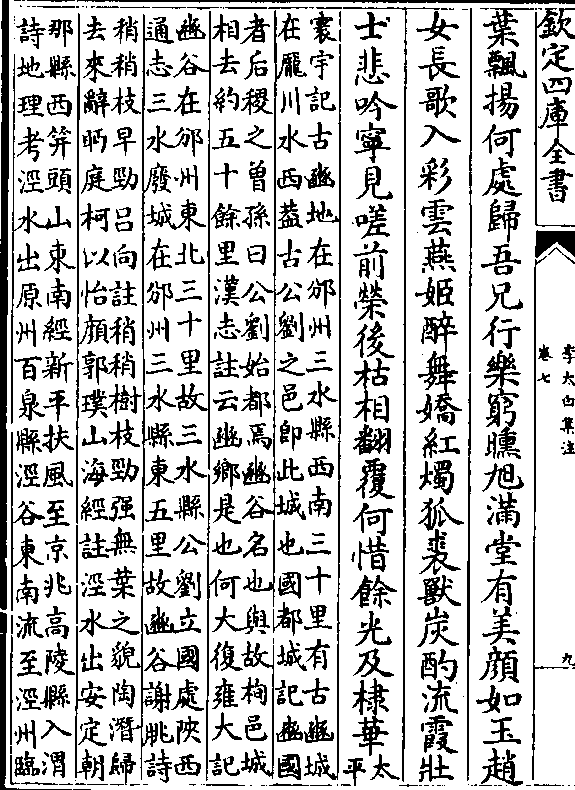 欽定四庫全書
李太白集注
卷七
九
葉飄揚何處歸吾兄行樂窮曛旭滿堂有美顔如玉趙
女長歌入彩雲燕姬醉舞嬌紅燭狐裘獸炭酌流霞壯
士悲吟寧見嗟前榮後枯相翻覆何惜餘光及棣華太
平
寰宇記古豳地在邠州三水縣西南三十里有古豳城
在隴川水西葢古公劉之邑即此城也國都城記豳國
者后稷之曽孫曰公劉始都焉豳谷名也與故栒邑城
相去約五十餘里漢志註云豳鄉是也何大復雍大記
豳谷在邠州東北三十里故三水縣公劉立國處陜西
通志三水廢城在邠州三水縣東五里故豳谷謝朓詩
稍稍枝早勁吕向註稍稍樹枝勁强無葉之貌陶潛歸
去來辭眄庭柯以怡顔郭璞山海經註涇水出安定朝
那縣西笄頭山東南經新平扶風至京兆高陵縣入渭
詩地理考涇水出原州百泉縣涇谷東南流至涇州臨